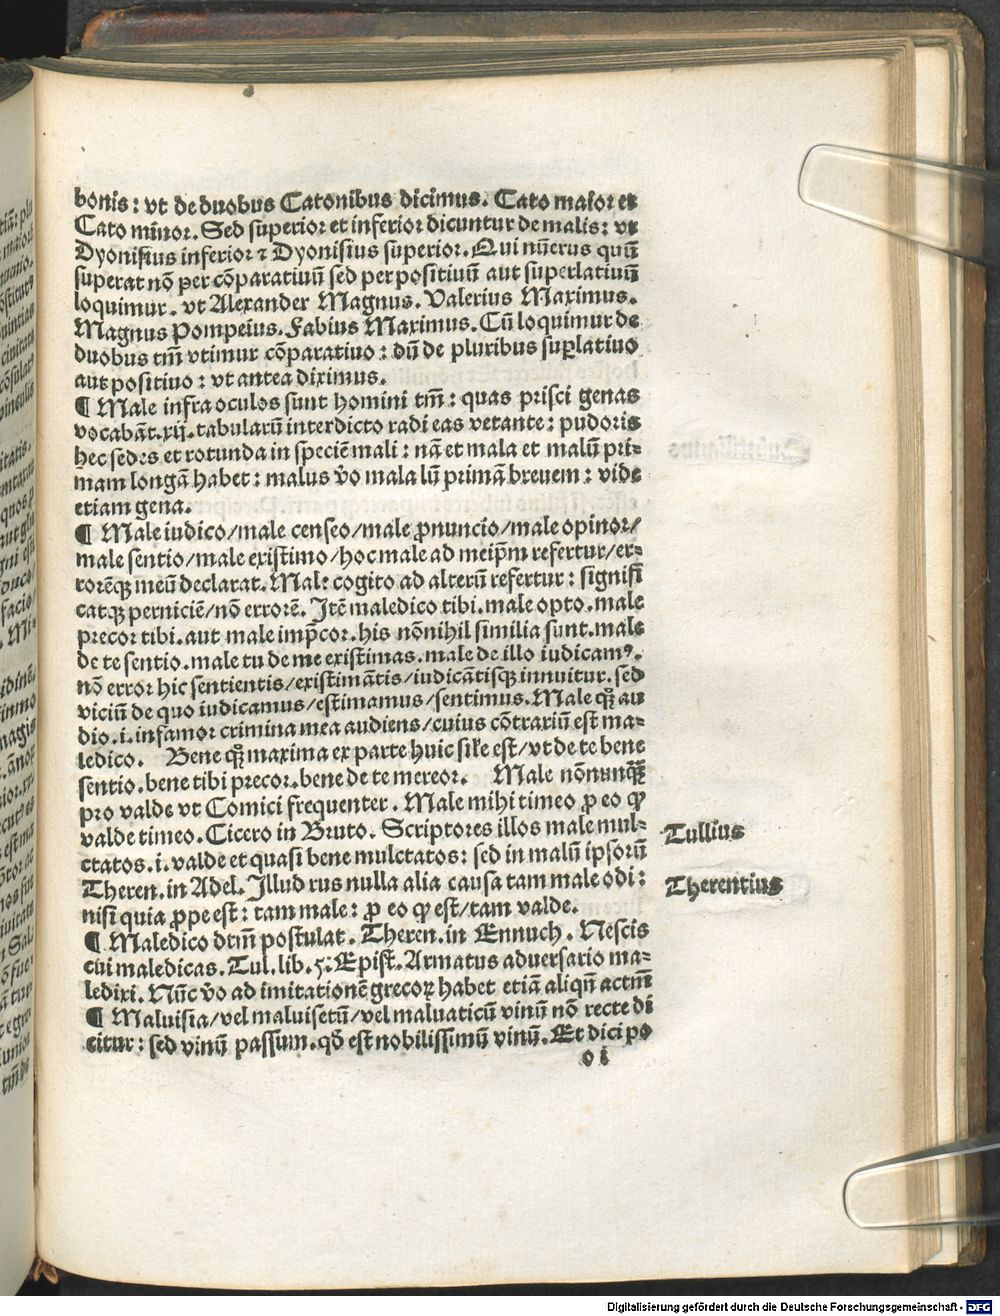 bonis: vt de duobus Catonibus dicimus. Cato maior et
Cato minor. Sed superior et inferior dicuntur de malis: vt
Dyonisius inferior ⁊ Dyonisius superior. Qui nũerus quũ
superat nõ per cõparatiuũ sed per positiuũ aut superlatiuũ
loquimur. vt Alexander Magnus. Valerius Maximus.
Magnus Pompeius. Fabius Maximus. Cũ loquimur de
duobus tm̃ vtimur cõparatiuo: dũ de pluribus suꝑlatiuo
aut positiuo: vt antea diximus.
¶ Male infra oculos sunt homini tm̃: quas prisci genas
vocabãt. xij. tabularũ interdicto radi eas vetante: pudoris
hec sedes et rotunda in speciẽ mali: nã et mala et malũ pri-
mam longã habet: malus v̓o mala lũ primã breuem: vide
etiam gena.
¶ Male iudico/male censeo/male ꝓnuncio/male opinor/
male sentio/male existimo/hoc male ad meip̃m refertur/er-
rorẽqꝫ meũ declarat. Male cogito ad alterũ refertur: signifi
catqꝫ perniciẽ/nõ errorẽ. Itẽ maledico tibi. male opto. male
precor tibi. aut male imp̃cor. his nõnihil similia sunt. male
de te sentio. male tu de me existimas. male de illo iudicamꝰ.
nõ error hic sentientis/existimãtis/iudicãtisqꝫ innuitur. sed
viciũ de quo iudicamus/estimamus/sentimus. Male qꝫ̃ au
dio. i. infamor crimina mea audiens/cuius cõtrariũ est ma-
ledico. Bene qꝫ̃ maxima ex parte huic sile est/vt de te bene
sentio. bene tibi precor. bene de te mereor. Male nõnunqꝫ̃
pro valde vt Comici frequenter. Male mihi timeo ꝓ eo ꝙ
valde timeo. Cicero in Bruto. Scriptores illos male mul-
ctatos. i. valde et quasi bene mulctatos: sed in malũ ipsorũ
Theren. in Adel. Illud rus nulla alia causa tam male odi:
nisi quia ꝓpe est: tam male: ꝓ eo ꝙ est/tam valde.
¶ Maledico dtm̃ postulat. Theren. in Ennuch. Nescis
cui maledicas. Tul. lib. 5. Epist. Armatus aduersario ma-
ledixi. Nũc v̓o ad imitationẽ grecoꝝ habet etiã aliqñ actm̃
¶ Maluisia/vel maluisetũ/vel maluaticũ vinũ nõ recte di
citur: sed vinũ passum. qd̓ est nobilissimũ vinũ. Et dici po
o i
Tullius
Therentius
Digitalisierung gefördert durch die Deutsche Forschungsgemeinschaft - DFG